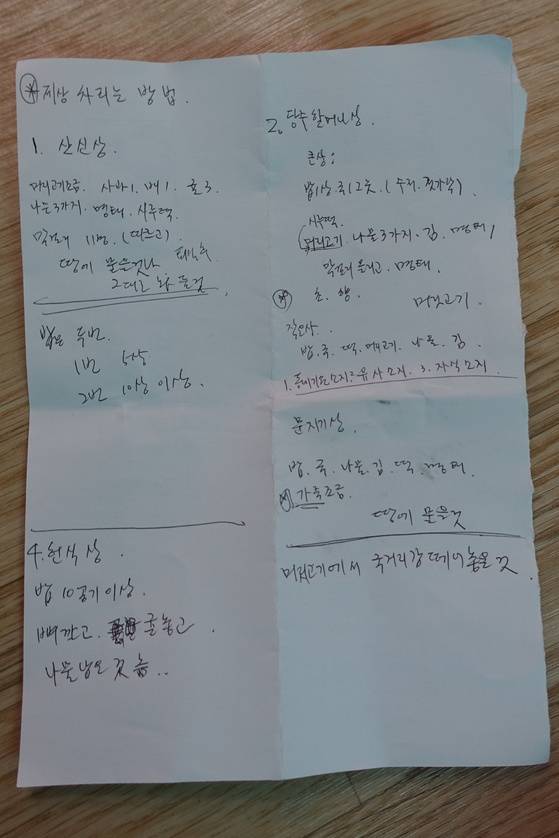 ※ 제상 차리는 방법.
1. 산신상.
머리고기조금. 사과1. 배1. 귤3.
나물3가지. 명태. 시루떡.
막걸리 1병. (따르고)
땅에 묻을것
그대로 놔 둘것
밥은 두번.
1번 5상
2번 10상 이상.
4. 헌식상.
밥 10공기 이상.
배깎고. 귤놓고.
나물남은 것 놈..
2. 당주할머니상.
큰상:
밥1상. 국(2그릇. (수저. 젓가락).
시루떡.
머리고기. 나물3가지. 김. 명태)
막걸리올리고. 명태.
초. 향. 머릿고기.
작은상
밥. 국. 떡. 머리고기. 나물. 김.
3. 자식소지.
문지기상.
밥. 국. 나물. 김. 떡. 명태.
가죽조금.
땅에 묻을것
머리고기에서 국거리감 떼어놓을 것.